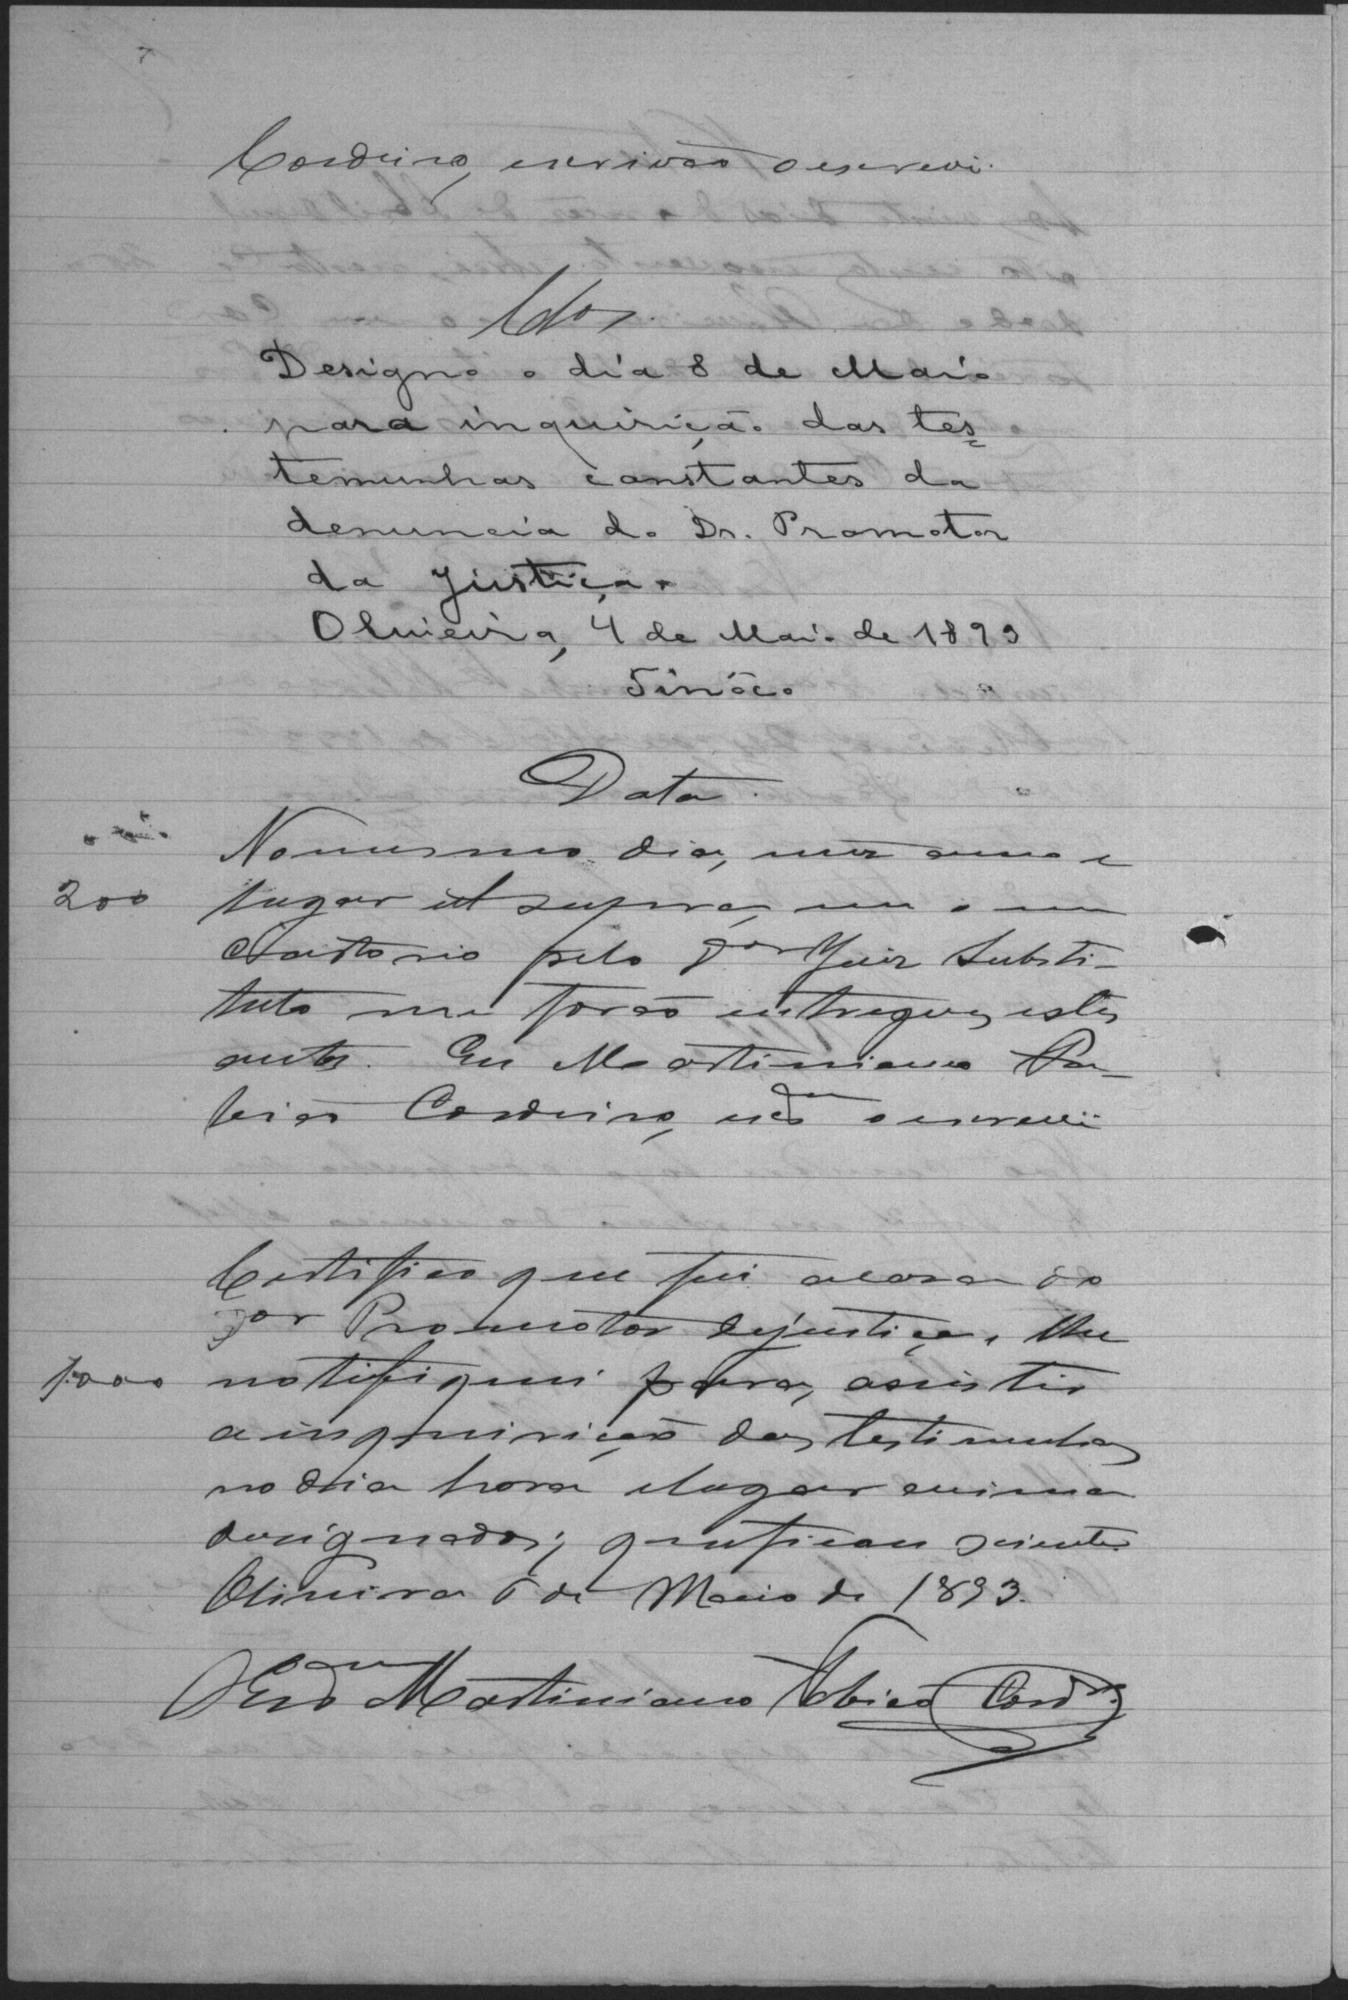 Cordeiro, escrivão o escrevi.
Clos.
Designo o dia 8 de Maio
para inquirição das tes=
temunhas constantes da
denuncia do Dr. Promotor
da Justiça.
Oliveira, 4 de Maio de 1893
Sinóco
Data.
No mesmo dia, mez anno e
200 lugar ut supra, em o meu
Cartorio pelo Dor Juiz Substi-
tuto me forão entregues estes
autos. Eu Martiniano
Cordeiro, escam o escrevi
Certifico que fui a casa do
Dor Promotor de justiça, lhe
1.000 notifiquei para, assistir
a inquirição das testimunhas
no dia hora e lugar acima
designados; que ficou sciente
Oliveira 6 de Maio de 1893.
O Escam Martiniano Cordo